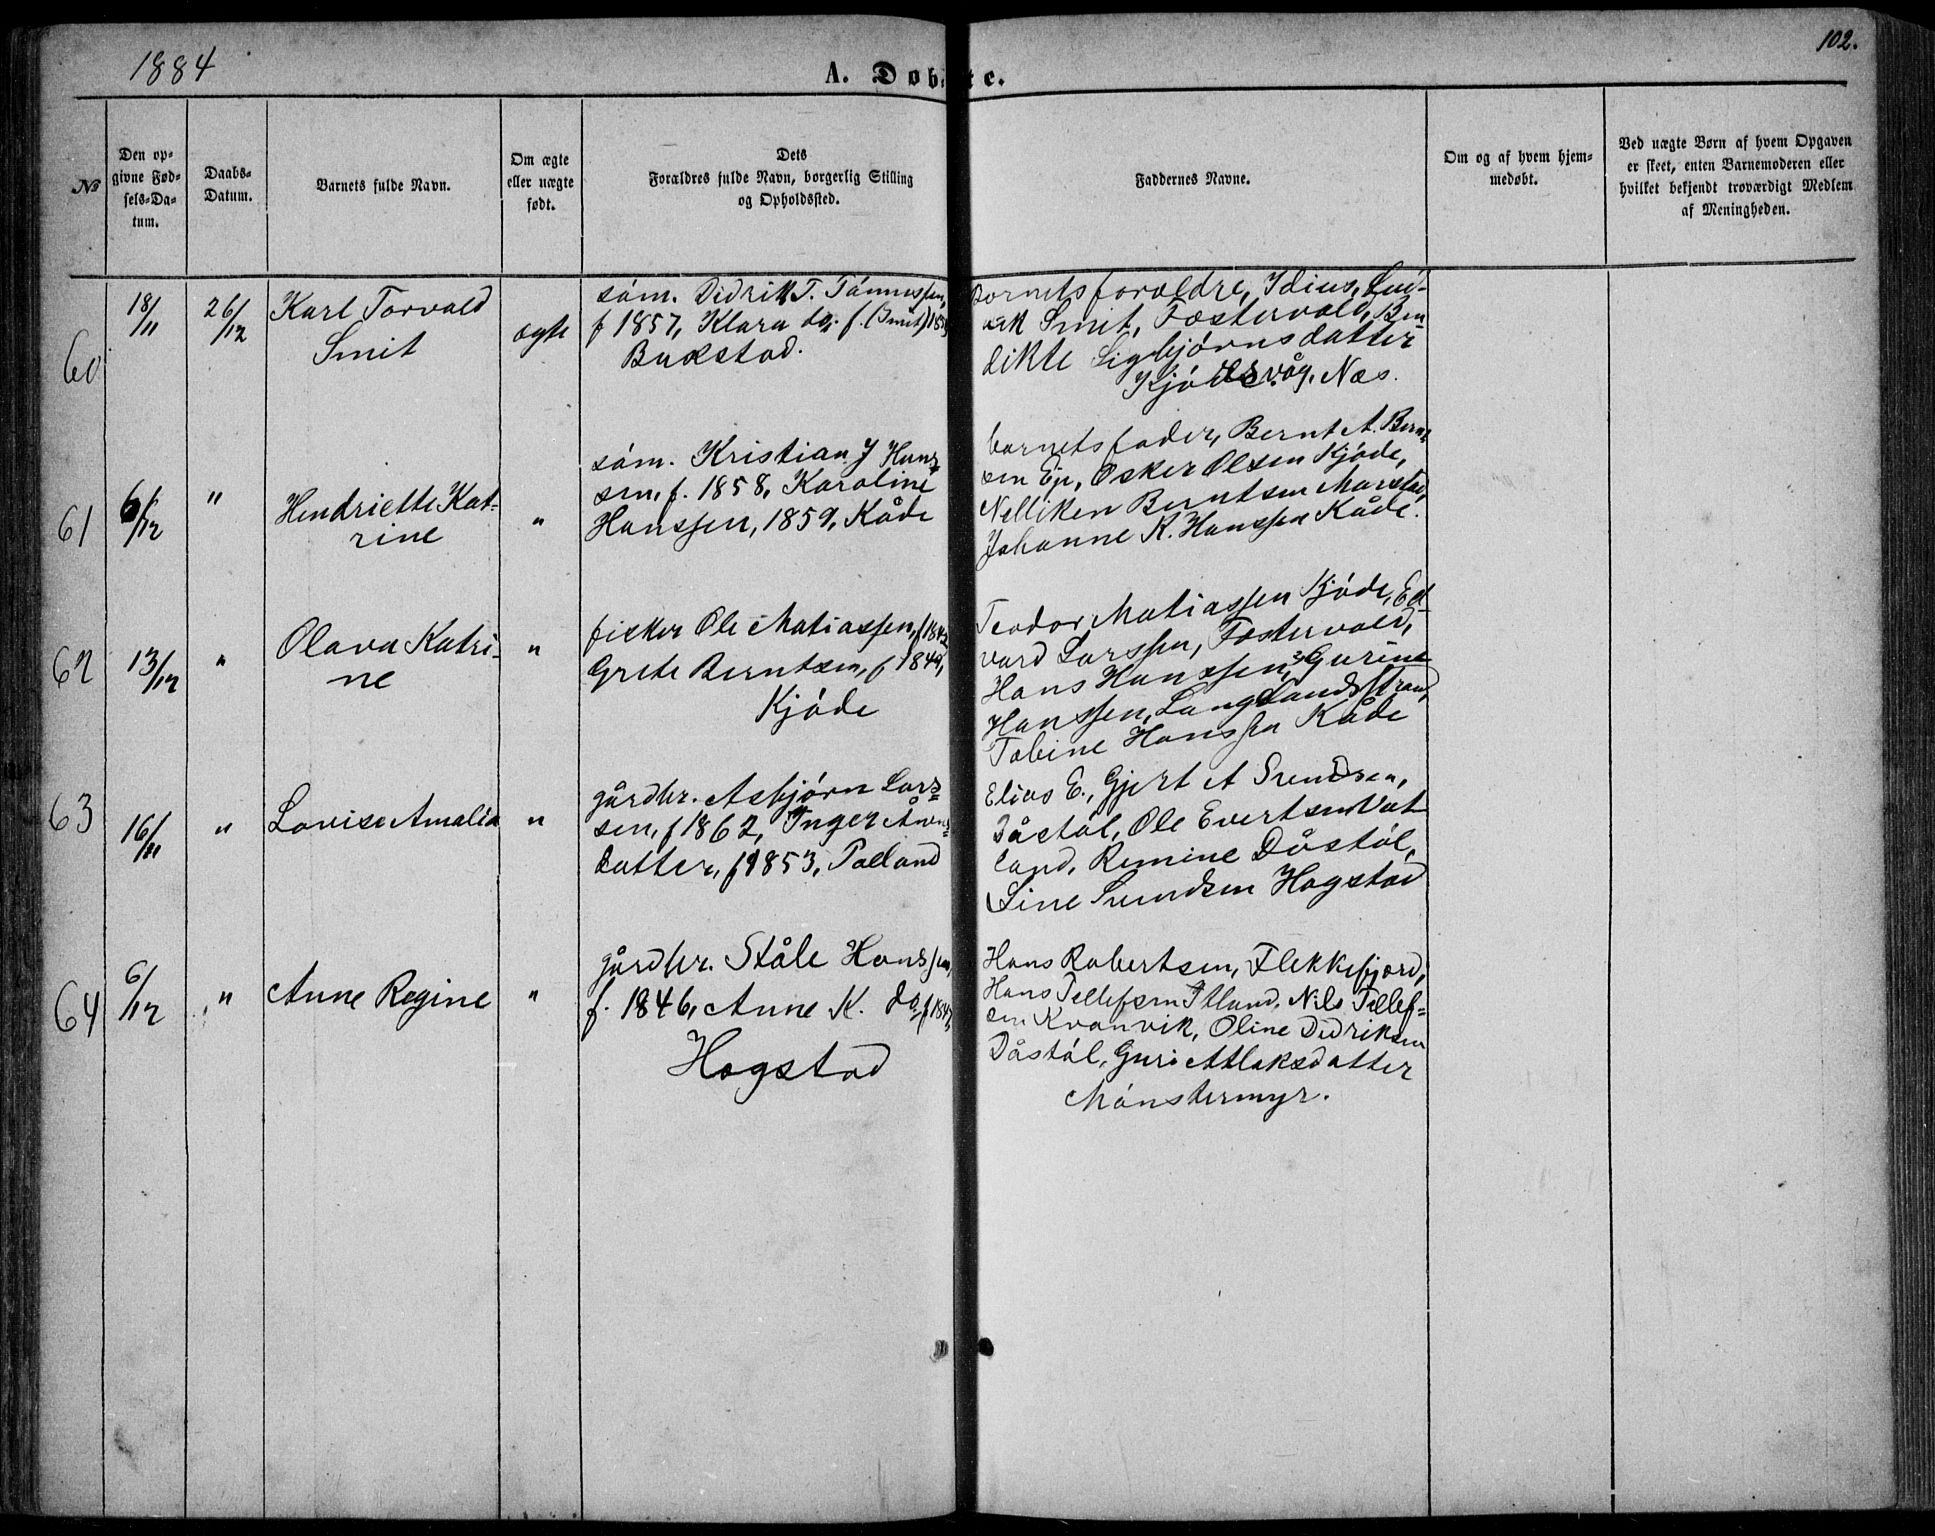 1884
A. Døbte.
102.
№
Den op-
givne Fød-
sels-Da-
tum.
Daabs-
Datum.
Barnets fulde Navn.
Om ægte
eller uægte
født.
Dets
Forældres fulde Navn, borgerlig Stilling
og Opholdssted.
Faddernes Navne.
Om og af hvem hjem-
medøbt.
Ved uægte Børn af hvem Opgaven
er skeet, enten Barnemoderen eller
hvilket bekjendt troværdigt Medlem
af Menigheden.
60
18/11
26/12
Karl Torvald
Smit
ægte
søm. Didrik T. Tønnessen,
f 1857, Klara do. f. (Smit)
Bukstad.
Barnets forældre, Idius, Lud-
Smit, Fæstervold, Ben-
dikte Sigbjørnsdatter
Kjødesvåg. Næs.
61
6/12
"
Hendriette Kat-
rine
"
søm. Kristian J Hans-
sen, f. 1858, Karoline
Hanssen, 1859, Kåde
barnets fader, Bernt A. Bernt
sen Eje, Osker Olsen Kjøde,
Nelliken Berntsen Marstad,
Johanne K. Hanssen Kåde.
62
13/12
"
Olava Katri-
ne
"
fisker Ole Matiassen, f 1842
Grete Berntsen, f 1844,
Kjøde
Teodor Matiassen Kjøde, Ed-
vard Larssen, Fæstervold,
Hans Hanssen, Gurine
Hanssen, Langelandsstrand,
Tobine Hanssen Kåde
63
16/11
"
Lovise Amalia
"
gårdbr. Asbjørn Lars-
sen, f 1862, Inger Åvens-
datter, f 1853, Tælland
Elias E., Gjert A Svendsen,
Dåstøl, Ole Evertsen Vat
land, Remine Dåstøl,
Line Svendsen Hogstad
64
6/12
"
Anne Regine
"
gårdbr. Ståle Hanssen,
f. 1846, Anne K. do f 1847,
Hogstad
Hans Robertsen, Flekkefjord,
Hans Tellefsen Itland, Nils Tellef-
sen Kvanvik, Oline Didriksen
Dåstøl, Guri Atlaksdatter
Mønstermyr.